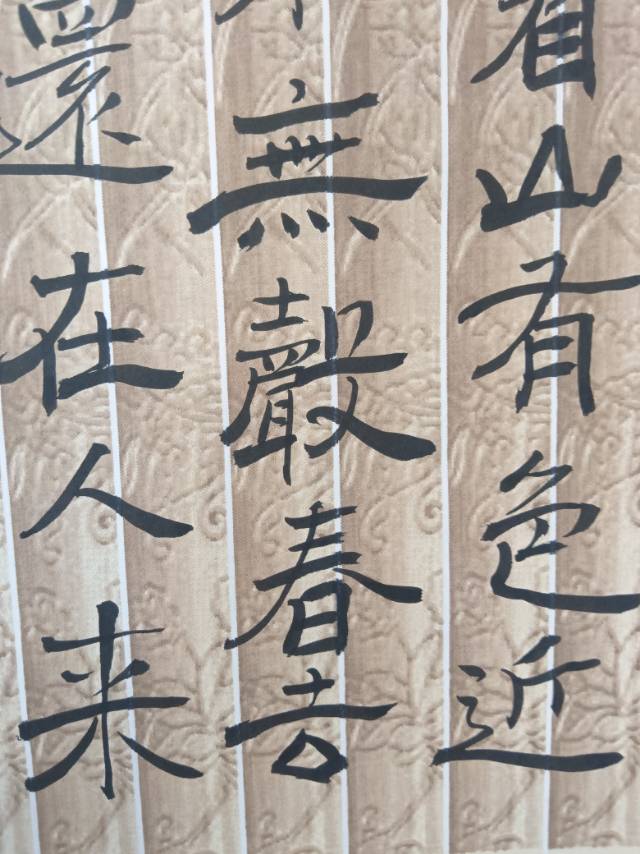 看山有色近
無聲春去
還在人来